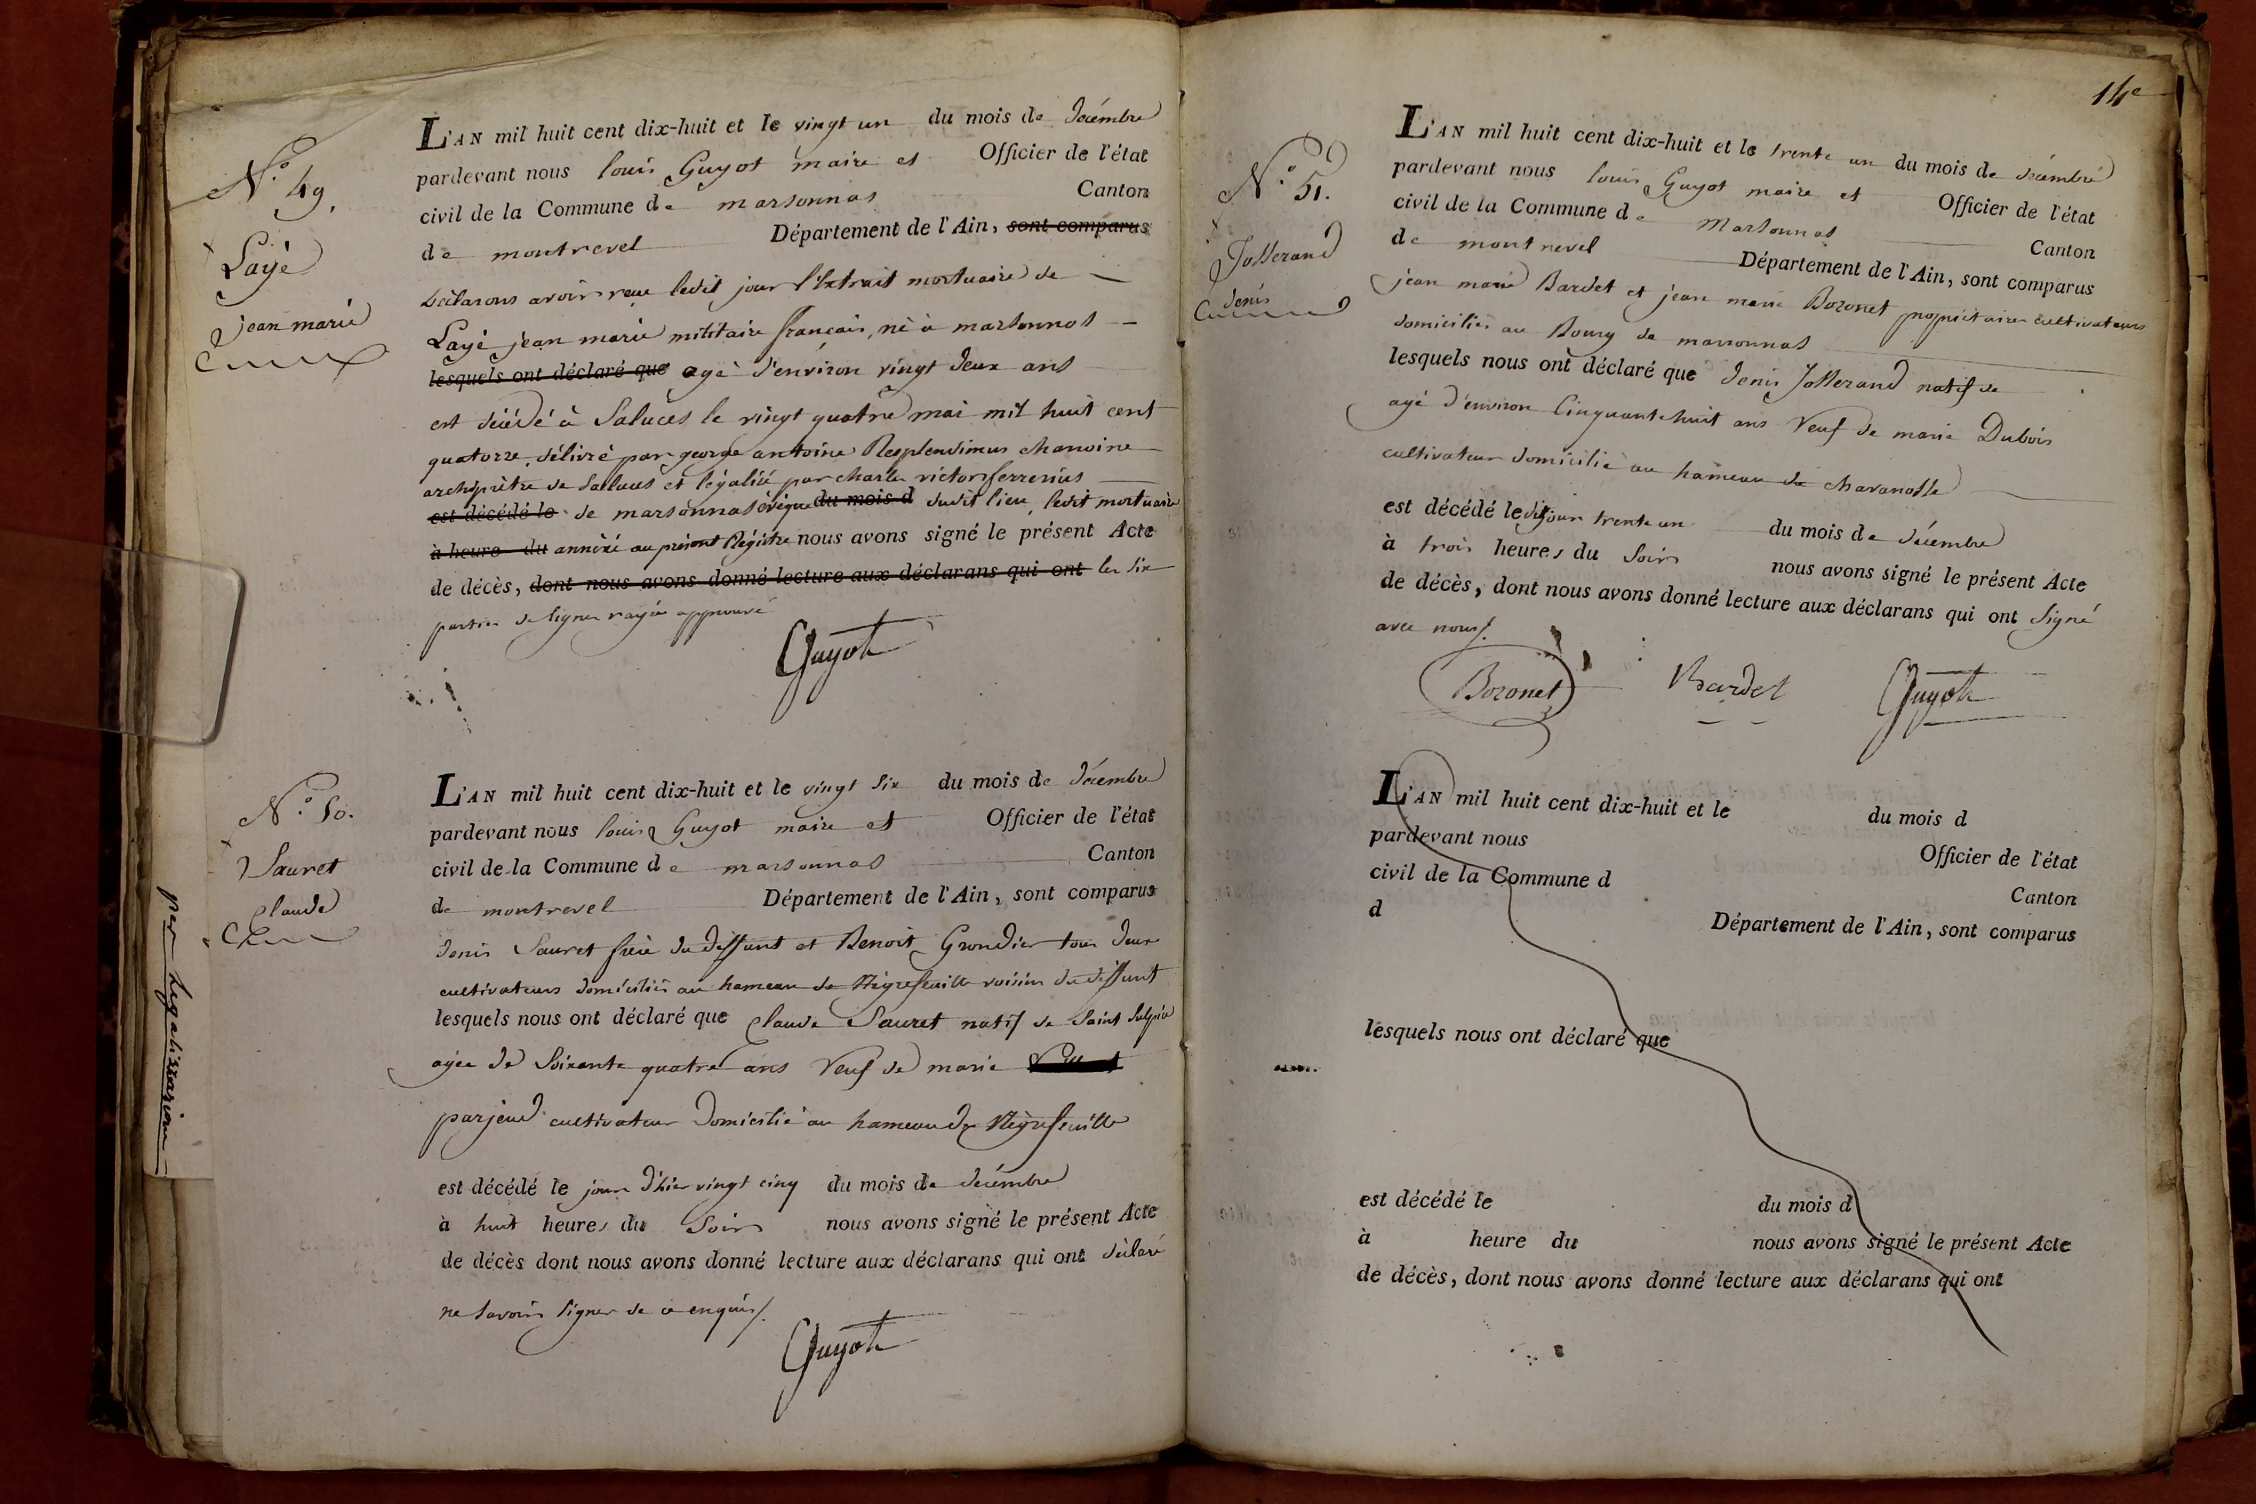 N.º 49.
Layé
jean marie
L'AN mil huit cent dix-huit et le vingt un du mois de décembre
pardevant nous louis Guyot maire et Officier de l'état
civil de la Commune de marsonnas Canton
de montrevel Département de l'Ain, sont comparus
déclarons avoir reçu ledit jour l'extrait mortuaire de
Layé jean marie militaire français, né à marsonnas
lesquels ont déclaré que agé d'environ vingt deux ans
est décédé à Saluces le vingt quatre mai mil huit cent
quatorze, délivré par george antoine Resplendinus chanoine
archiprêtre de Saluces et légalisé par charle victor ferrerius
est décédé le de marsonnas évêque du mois d dudit lieu, ledit mortuaire
à heure du annéxé au présent Régistre nous avons signé le présent Acte
de décès, dont nous avons donné lecture aux déclarans qui ont les six
parties de lignes rayées approuvé
Guyot
N.º 50.
Sauret
claude
L'AN mil huit cent dix-huit et le vingt six du mois de décembre
pardevant nous louis Guyot maire et Officier de l'état
civil de la Commune de marsonnas Canton
de montrevel Département de l'Ain, sont comparus
denis Sauret frère du deffunt et Benoit Grondier tous deux
cultivateurs domiciliés au hameau de Nègrefeuille voisins du deffunt
lesquels nous ont déclaré que claude Sauret natif de Saint Sulpice
agée de Soixante quatre ans Veuf de marie
parjeud cultivateur Domicilié au hameau de Nègrefeuille
est décédé le jour d'hier vingt cinq du mois de décembre
à huit heures du Soir nous avons signé le présent Acte
de décès dont nous avons donné lecture aux déclarans qui ont déclaré
ne savoir signer de ce enquis.
Guyot
per Legalizazione
14e
N.º 51.
Josserand
denis
L'AN mil huit cent dix-huit et le trente un du mois de décembre
pardevant nous louis Guyot maire et Officier de l'état
civil de la Commune de Marsonnas Canton
de montrevel Département de l'Ain, sont comparus
jean marie Bardet et jean marie Bozonet propriétaires cultivateurs
domiciliés au Bourg de marsonnas
lesquels nous ont déclaré que denis Josserand natif de
agé d'environ Cinquante huit ans Veuf de marie Dubois
cultivateur domicilié au hameau de chavanosse
est décédé ledit jour trente un du mois de décembre
à trois heures du Soir nous avons signé le présent Acte
de décès, dont nous avons donné lecture aux déclarans qui ont signé
avec nous.
Bozonet Bardet Guyot
L'AN mil huit cent dix-huit et le du mois d
pardevant nous Officier de l'état
civil de la Commune d Canton
d Département de l'Ain, sont comparus
lesquels nous ont déclaré que
est décédé le du mois d
à heure du nous avons signé le présent Acte
de décès, dont nous avons donné lecture aux déclarans qui ont